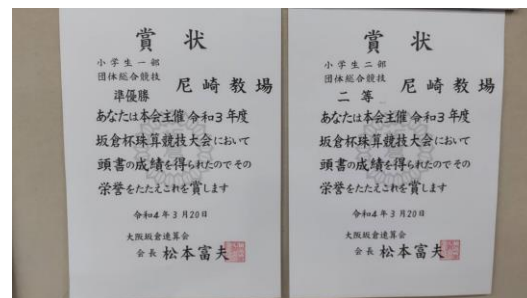 賞状
小学生一部
団体総合競技
尼崎教場
準優勝
あなたは本会主催令和3年度
坂倉杯珠算競技大会において
頭書の成績を得られたのでその
栄誉をたたえこれを賞します
令和4年3月20日
大阪坂倉速算会
会長 松本富夫
賞状
小学生二部
団体総合競技
尼崎教場
二等
あなたは本会主催令和3年度
坂倉杯珠算競技大会において
頭書の成績を得られたのでその
栄誉をたたえこれを賞します
令和4年3月20日
大阪坂倉速算会
会長 松本富夫